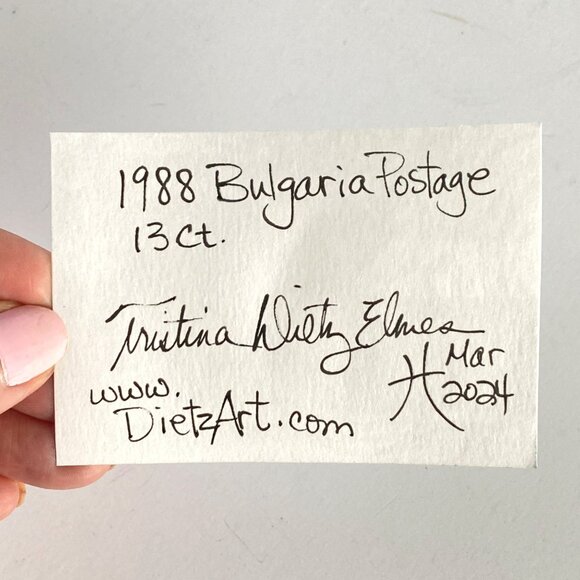 1988 Bulgaria Postage
13 Ct.
Tristina Dietz Elmes
Mar
2024
www.
DietzArt.com